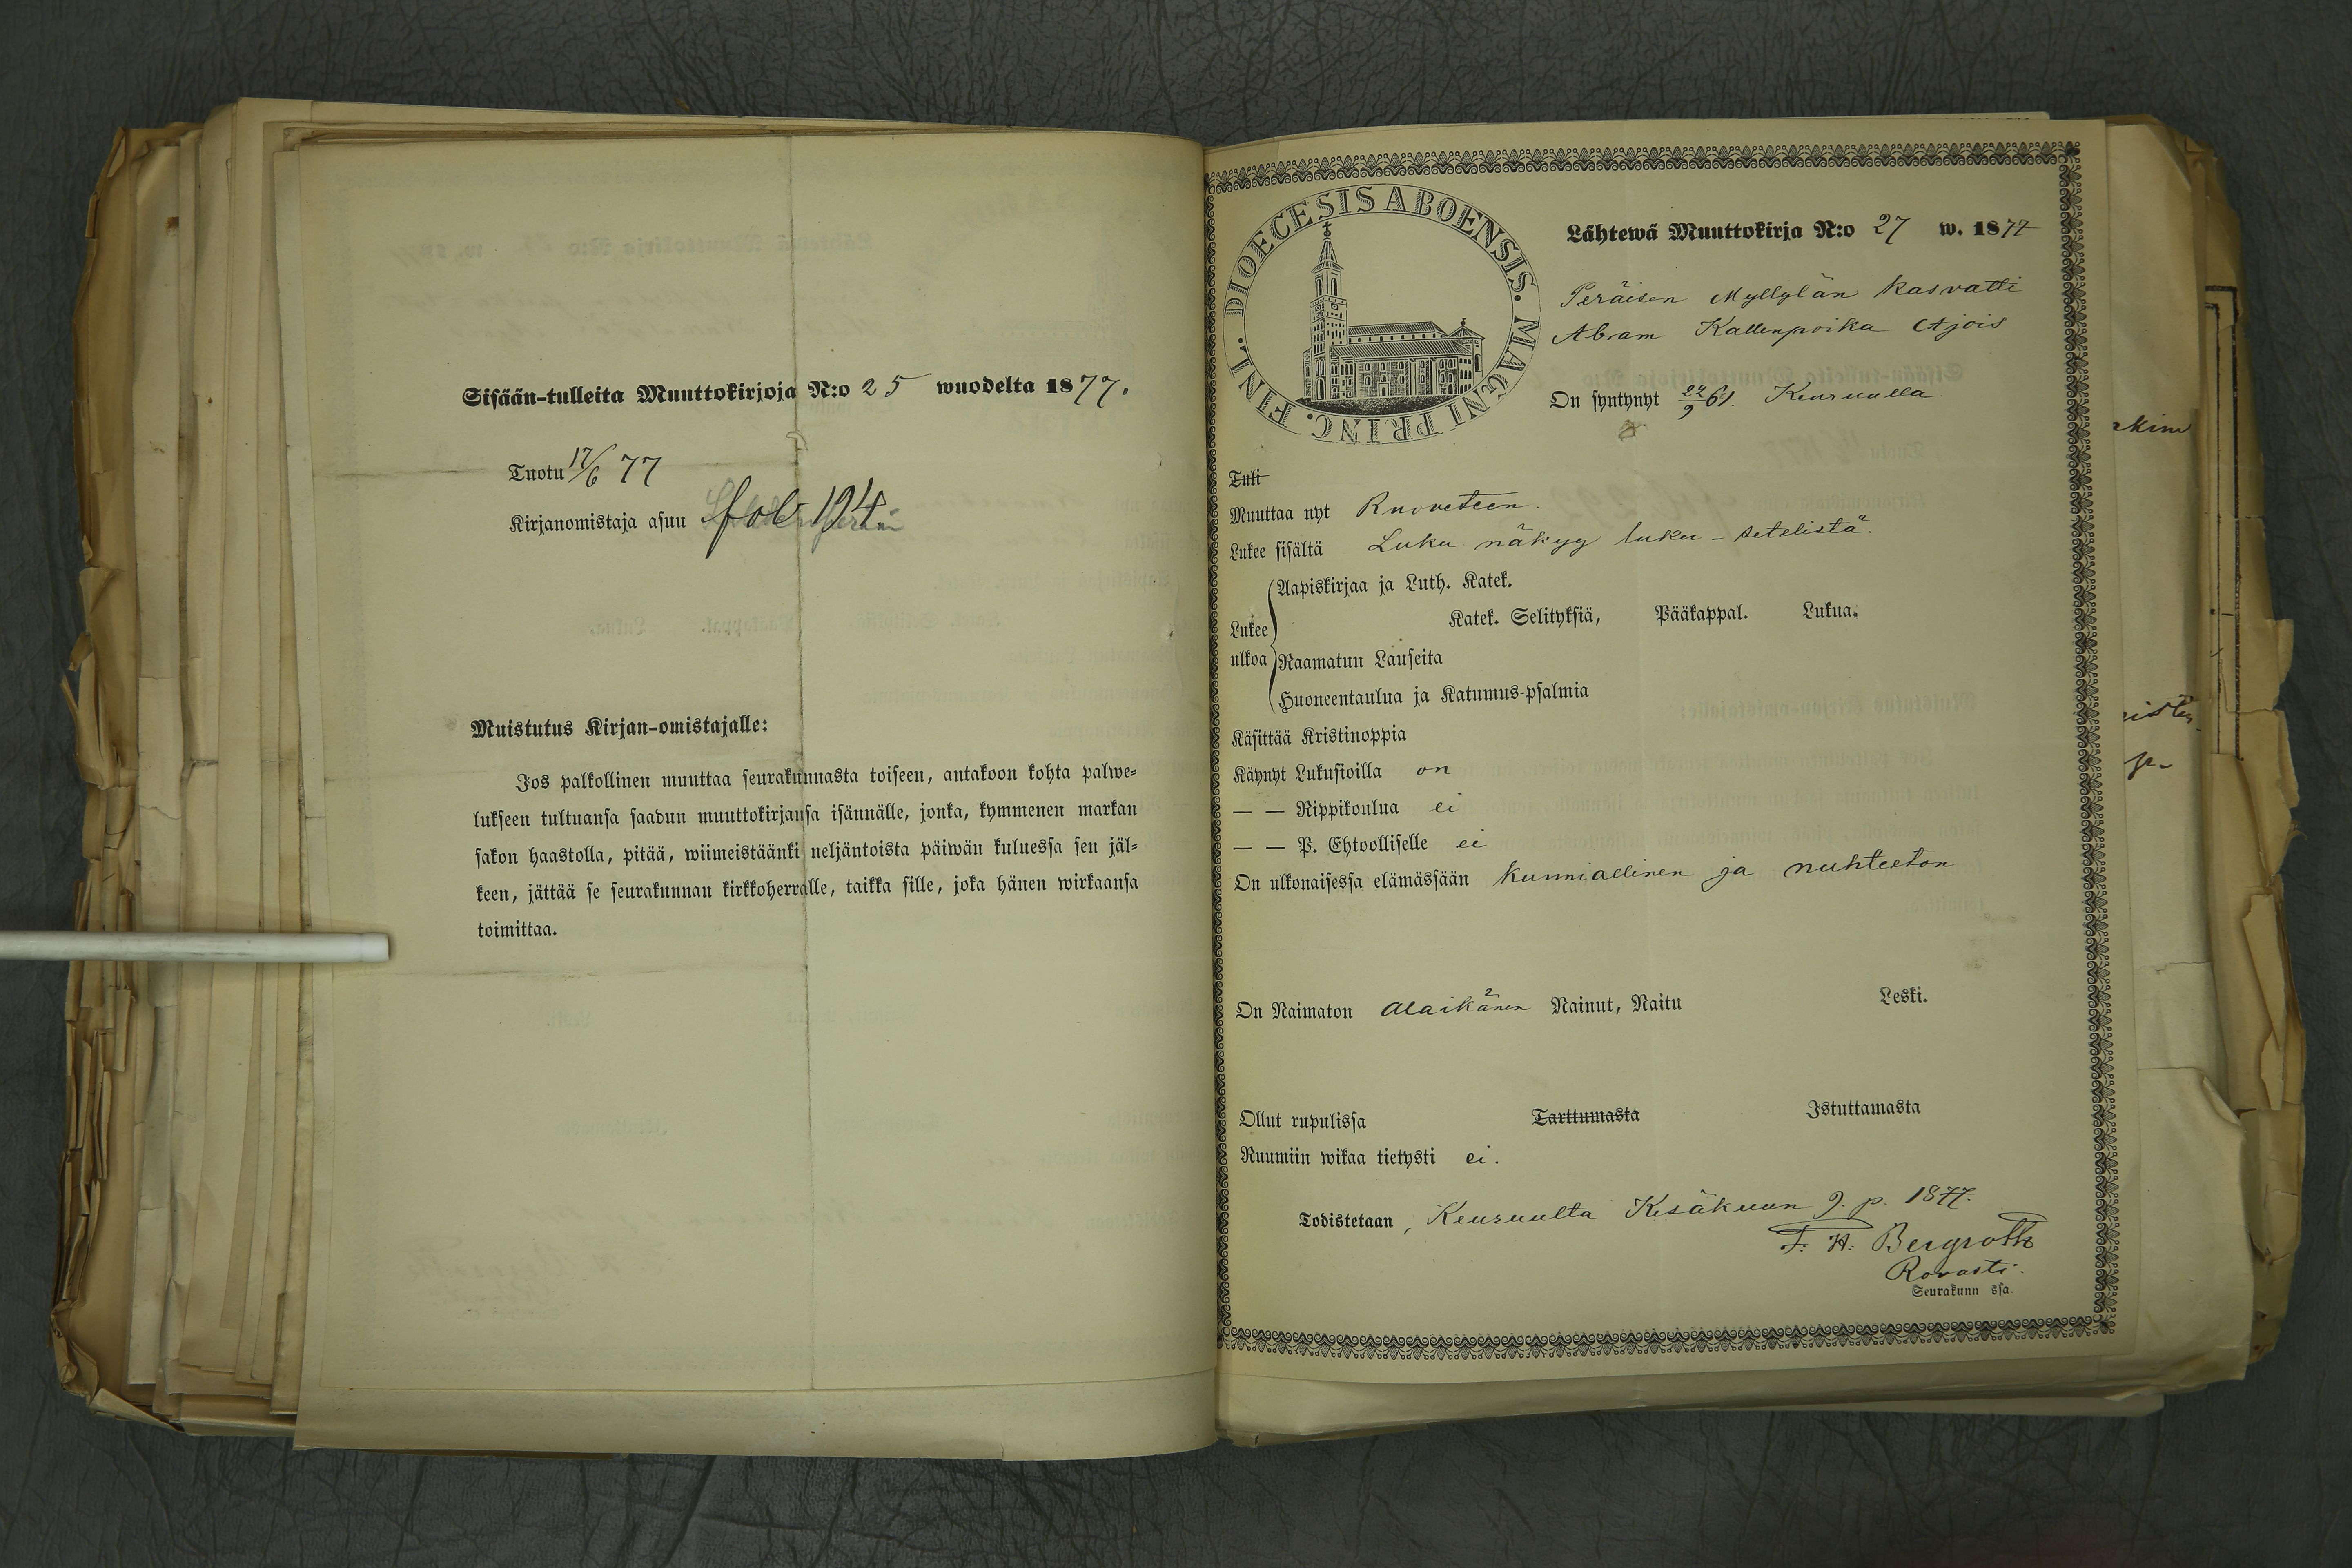 Sisään-tulleita Muuttokirjoja N:o 25 wuodelta 1877.
Tuotu 17/6 77
Kirjanomistaja asuu fol 194.
Muistutus Kirjan-omistajalle:
Jos palkollinen muuttaa seurakunnasta toiseen, antakoon kohta palwe-
lukseen tultuansa saadun muuttokirjansa isännälle, jonka, kymmenen markan
sakon haastolla, pitää, wiimeistäänki neljäntoista päiwän kuluessa sen jäl-
keen, jättää se seurakunnan kirkkoherralle, taikka sille, joka hänen wirkaansa
toimittaa.
DIOECESIS ABOENSIS. MAGNI PRINC. FINL.
Lähtewä Muuttokirja N:o 27 w. 1877
Peräisen Myllylän kasvatti
Abram Kallenpoika Ajois
On syntynyt 22/9 61. Keuruulla
Tuli
Muuttaa nyt Ruoveteen.
Lukee sisältä Luku näkyy luku-setelistä.
Aapiskirjaa ja Luth. Katek.
Katek. Selityksiä, Pääkappal. Lukua.
Lukee
ulkoa Raamatun Lauseita
Huoneentaulua ja Katumus-psalmia
Käsittää Kristinoppia
Käynyt Lukusioilla on
— — Rippikoulua ei
— — P. Ehtoolliselle ei
On ulkonaisessa elämässään kunniallinen ja nuhteeton
On Naimaton alaikänen Nainut, Naitu Leski.
Ollut rupulissa Tarttumasta Istuttamasta
Ruumiin wikaa tietysti ei.
Todistetaan, Keuruulta Kesäkuun 9. p. 1877.
F. H. Bergroth
Rovasti.
Seurakunn ssa.